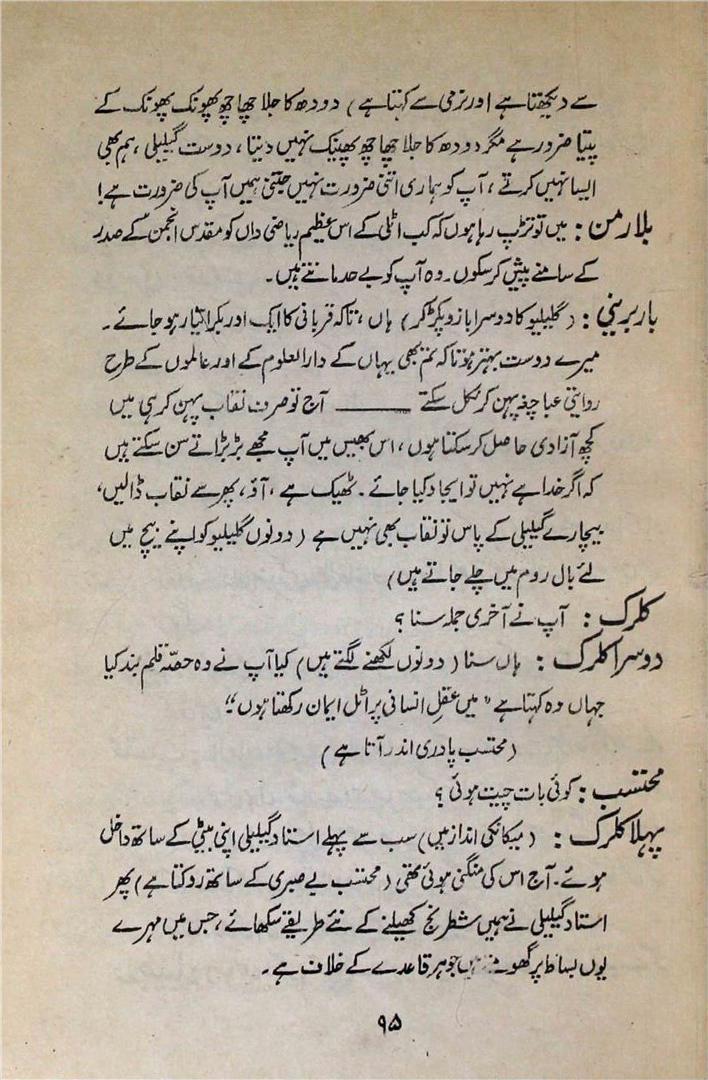 سے دیکھتا ہے اور نرمی سے کہتا ہے) دودھ کا جلا چھاچھ پھونک پھونک کے
پیتا ضرور ہے مگر دودھ کا جلا چھاچھ پھینک نہیں دیتا، دوست گیلیلی، ہم بھی
ایسا نہیں کرتے، آپ کو ہماری اتنی ضرورت نہیں جتنی ہمیں آپ کی ضرورت ہے!
بلارمن: میں تو تڑپ رہا ہوں کہ کب اٹلی کے اس عظیم ریاضی داں کو مقدس انجمن کے صدر
کے سامنے پیش کر سکوں۔ وہ آپ کو بے حد مانتے ہیں۔
باربرینی: (گلیلیو کا دوسرا بازو پکڑ کر) ہاں، تاکہ قربانی کا ایک اور بکرا تیار ہو جائے۔
میرے دوست بہتر ہوتا کہ تم بھی یہاں کے دارالعلوم کے اور عالموں کے طرح
روایتی عبا چغہ پہن کر نکل سکتے ——— آج تو صرف نقاب پہن کر ہی میں
کچھ آزادی حاصل کر سکتا ہوں، اس بھیس میں آپ مجھے بڑبڑاتے سن سکتے ہیں
کہ اگر خدا ہے نہیں تو ایجاد کیا جائے۔ ٹھیک ہے، آؤ، پھر سے نقاب ڈالیں،
بیچارے گیلیلی کے پاس تو نقاب بھی نہیں ہے (دونوں گلیلیو کو اپنے بیچ میں
لئے بال روم میں چلے جاتے ہیں)
کلرک: آپ نے آخری جملہ سنا؟
دوسرا کلرک: ہاں سنا (دونوں لکھنے لگتے ہیں) کیا آپ نے وہ حصّہ قلم بند کیا
جہاں وہ کہتا ہے "میں عقلِ انسانی پر اٹل ایمان رکھتا ہوں"؟
(محتسب پادری اندر آتا ہے)
محتسب: کوئی بات چیت ہوئی؟
پہلا کلرک: (میکانکی انداز میں) سب سے پہلے استاد گیلیلی اپنی بیٹی کے ساتھ داخل
ہوئے۔ آج اس کی منگنی ہوئی تھی (محتسب بے صبری کے ساتھ روکتا ہے) پھر
استاد گیلیلی نے ہمیں شطرنج کھیلنے کے نئے طریقے سکھائے، جس میں مہرے
یوں بساط پر گھومتے ہیں جو ہر قاعدے کے خلاف ہے۔
۹۵